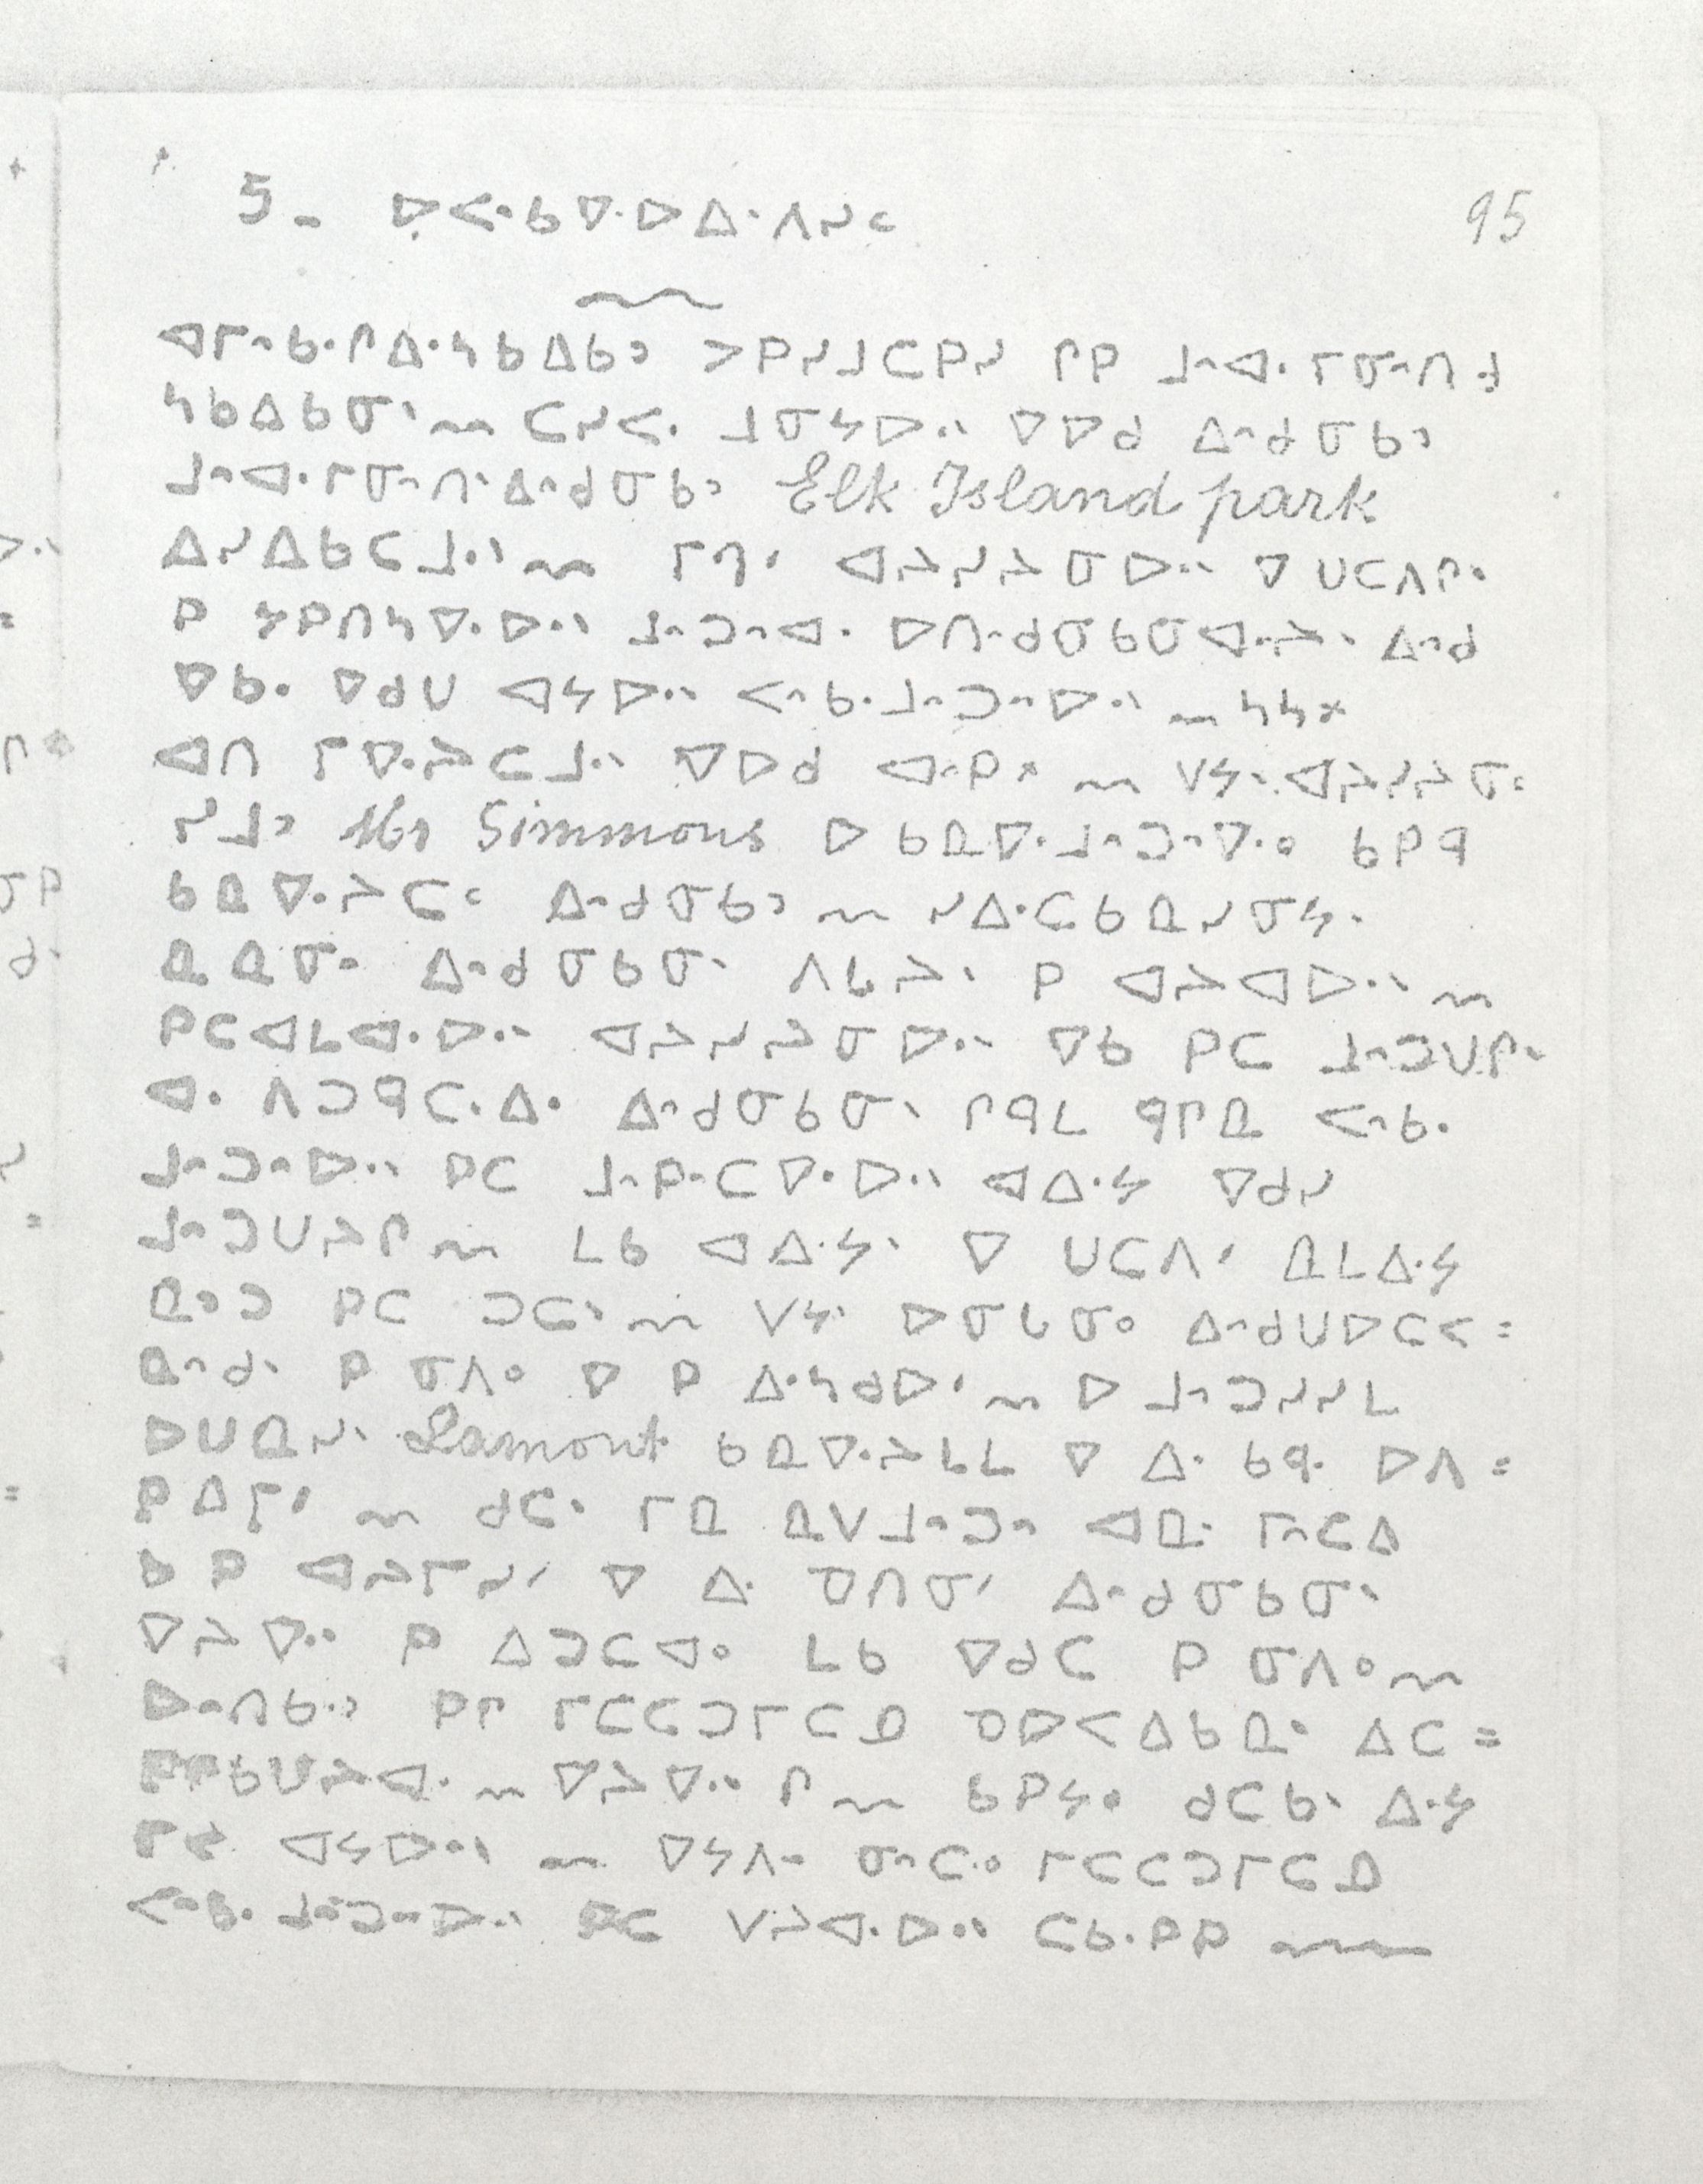 5- ᐅᐸᐧᑲᐁᐧᐅᐃᐧᐱᓯᑦ 95
ᐊᒥᐢᑲᐧᒋᐃᐧᓴᑲᐃᑲᐣ ᐳᑭᓯᒧᑕᑭᓯ ᒋᑭ ᒧᐢᐊᐧᒥᓂᐢᑎᑯ
ᓴᑲᐃᑲᓂᐠ ᑕᓯᐸᐧ ᒧᓂᔭᐅᐧᐠ ᐁᐅᑯ ᐃᐢᑯᓂᑲᐣ
ᒧᐢᐊᐧᒥᓂᐢᑎᐠ ᐃᐢᑯᓂᑲᐣ Elk Island park
ᐃᓯᐃᑲᑕᒧᐧᐠ ᒥᒉᐟ ᐊᔨᓯᔨᓂᐅᐧᐠ ᐁ ᑌᑕᐱᒋᐠ
ᑭ ᓭᑭᑎᓴᐁᐧᐅᐧᐠ ᒧᐢᑐᐢᐊᐧ ᐅᑎᐢᑯᓂᑲᓂᐊᐧᔨᐠ ᐃᐢᑯ
ᐁᑲᐧ ᐁᑯᑌ ᐊᔭᐅᐧᐠ ᐸᐢᑲᐧᒧᐢᑐᐢᐅᐧᐠ ᓴᓴ᙮
ᐊᑎ ᒥᐁᐧᔨᑕᒧᐧᐠ ᐁᐅᑯ ᐊᐧᐢᑭ᙮ ᐯᔭᐠ ᐊᔨᓯᔨᓂᐤ
ᓯᒧᐣ Mr Simmons ᐅ ᑲᓇᐁᐧᒧᐢᑐᐢᐁᐧᐤ ᑲᑭᑫ
ᑲᓇᐁᐧᔨᑕᒼ ᐃᐢᑯᓂᑲᐣ ᓯᐃᐧᑕᑲᓇᓯᓂᔭᐠ
ᓇᓇᓂᐤ ᐃᐢᑯᓂᑲᓂᐠ ᐱᒐᔨᐠ ᑭ ᐊᔨᐊᐅᐧᐠ
ᑭᑕᐊᒐᐊᐧᐅᐧᐠ ᐊᔨᓯᔨᓂᐅᐧᐠ ᐁᑲ ᑭᑕ ᒧᐢᑐᑌᒋᐠ
ᐊᐧ ᐱᑐᑫᑕᐧᐃᐧ ᐃᐢᑯᓂᑲᓂᐠ ᒋᑫᒪ ᑫᒋᓇ ᐸᐢᑲᐧ
ᒧᐢᑐᐢᐅᐧᐠ ᑭᑕ ᒧᐢᑭᐢᑕᐁᐧᐅᐧᐠ ᐊᐃᐧᔭ ᐁᑯᓯ
ᒧᐢᑐᑌᔨᒋ ᒪᑲ ᐊᐃᐧᔭᐠ ᐁ ᑌᑕᐱᐟ ᓇᒪᐃᐧᔭ
ᓇᐣᑐ ᑭᑕ ᑐᑕᐠ ᐯᔭᐠ ᐅᓂᒐᓂᐤ ᐃᐢᑯᑌᐅᑕᐸ=
ᓇᐢᑯᐠ ᑭ ᓂᐱᐤ ᐁ ᑭ ᐃᐧᓴᑯᐅᐟ ᐅ ᒧᐢᑐᓯᓯᒪ
ᐅᑌᓇᓯᐠ Lamont ᑲᓇᐁᐧᔨᒐᒪ ᐁ ᐃᐧ ᑲᑫᐧ ᐅᐱ=
ᑭᐃᒥᐟ ᑯᑕᐠ ᒥᓇ ᓇᐯᒧᐢᑐᐢ ᐊᓇ ᒥᐢᑕᐃ
ᑲ ᑭ ᐊᔨᒥᓯᐟ ᐁ ᐃᐧ ᓄᑎᓂᐟ ᐃᐢᑯᓂᑲᓂᐠ
ᐁᔨᐁᐧᐠ ᑭ ᐃᑐᑕᐊᐤ ᒪᑲ ᐁᑯᑕ ᑭ ᓂᐱᐤ
ᐅᐢᑎᑲᐧᐣ ᑭᒋ ᒥᑕᑕᑐᒥᑕᓄ ᓄᐅᐸᐃᑲᓇᐠ ᐃᑕ=
ᑌᔨᐊᐧ ᐁᔨᐁᐧᐠ ᒋ ᑲᑭᔭᐤ ᑯᑕᑲᐠ ᐃᐧᔭ
ᐊᔭᐅᐧᐠ ᐁᔭᐱᐨ ᓂᐢᑕᐧᐤ ᒥᑕᑕᑐᒥᑕᓄ
ᐸᐢᑲᐧ ᒧᐢᑐᐢᐅᐧᐠ ᑭᑕ ᐯᔨᐊᐧᐅᐧᐠ ᑕᑲᐧᑭᑭ